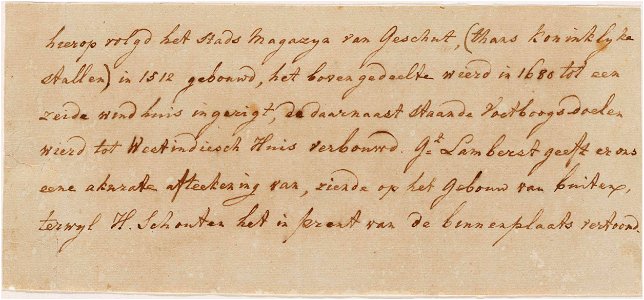 hierop volgd het stads Magazyn van Geschut, (thans Koninklyke
stallen) in 1512 gebouwd, het bovengedeelte wierd in 1680 tot een
zeide windhuis ingerigt, de daarnaast staande Voetboogs doelen
wierd tot Westindiesch Huis verbouwd. Gt Lamberst geeft er ons
eene akurate afteekening van, ziende op het Gebouw van buiten,
terwyl H. Schouten het in prent van de binnenplaats vertoond.